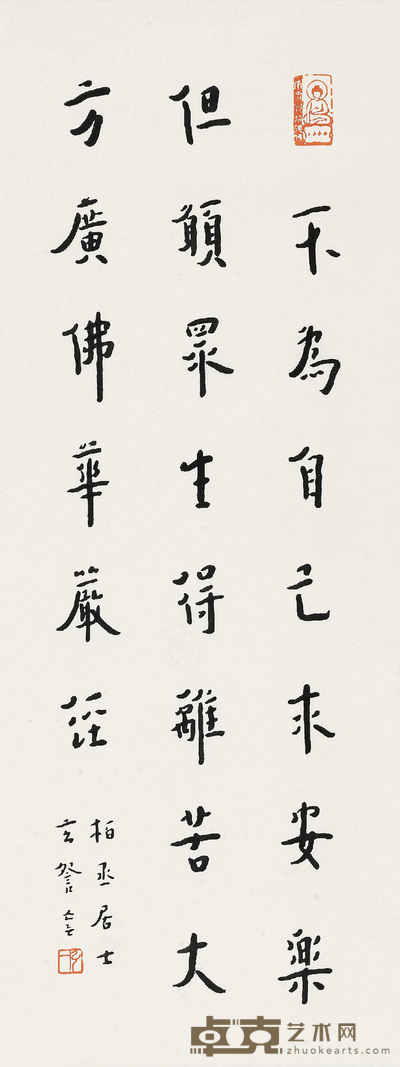 不為自己求安樂
但願眾生得離苦大
方廣佛華嚴經
柏丞居士
卓克艺术网
zhuokearts.com